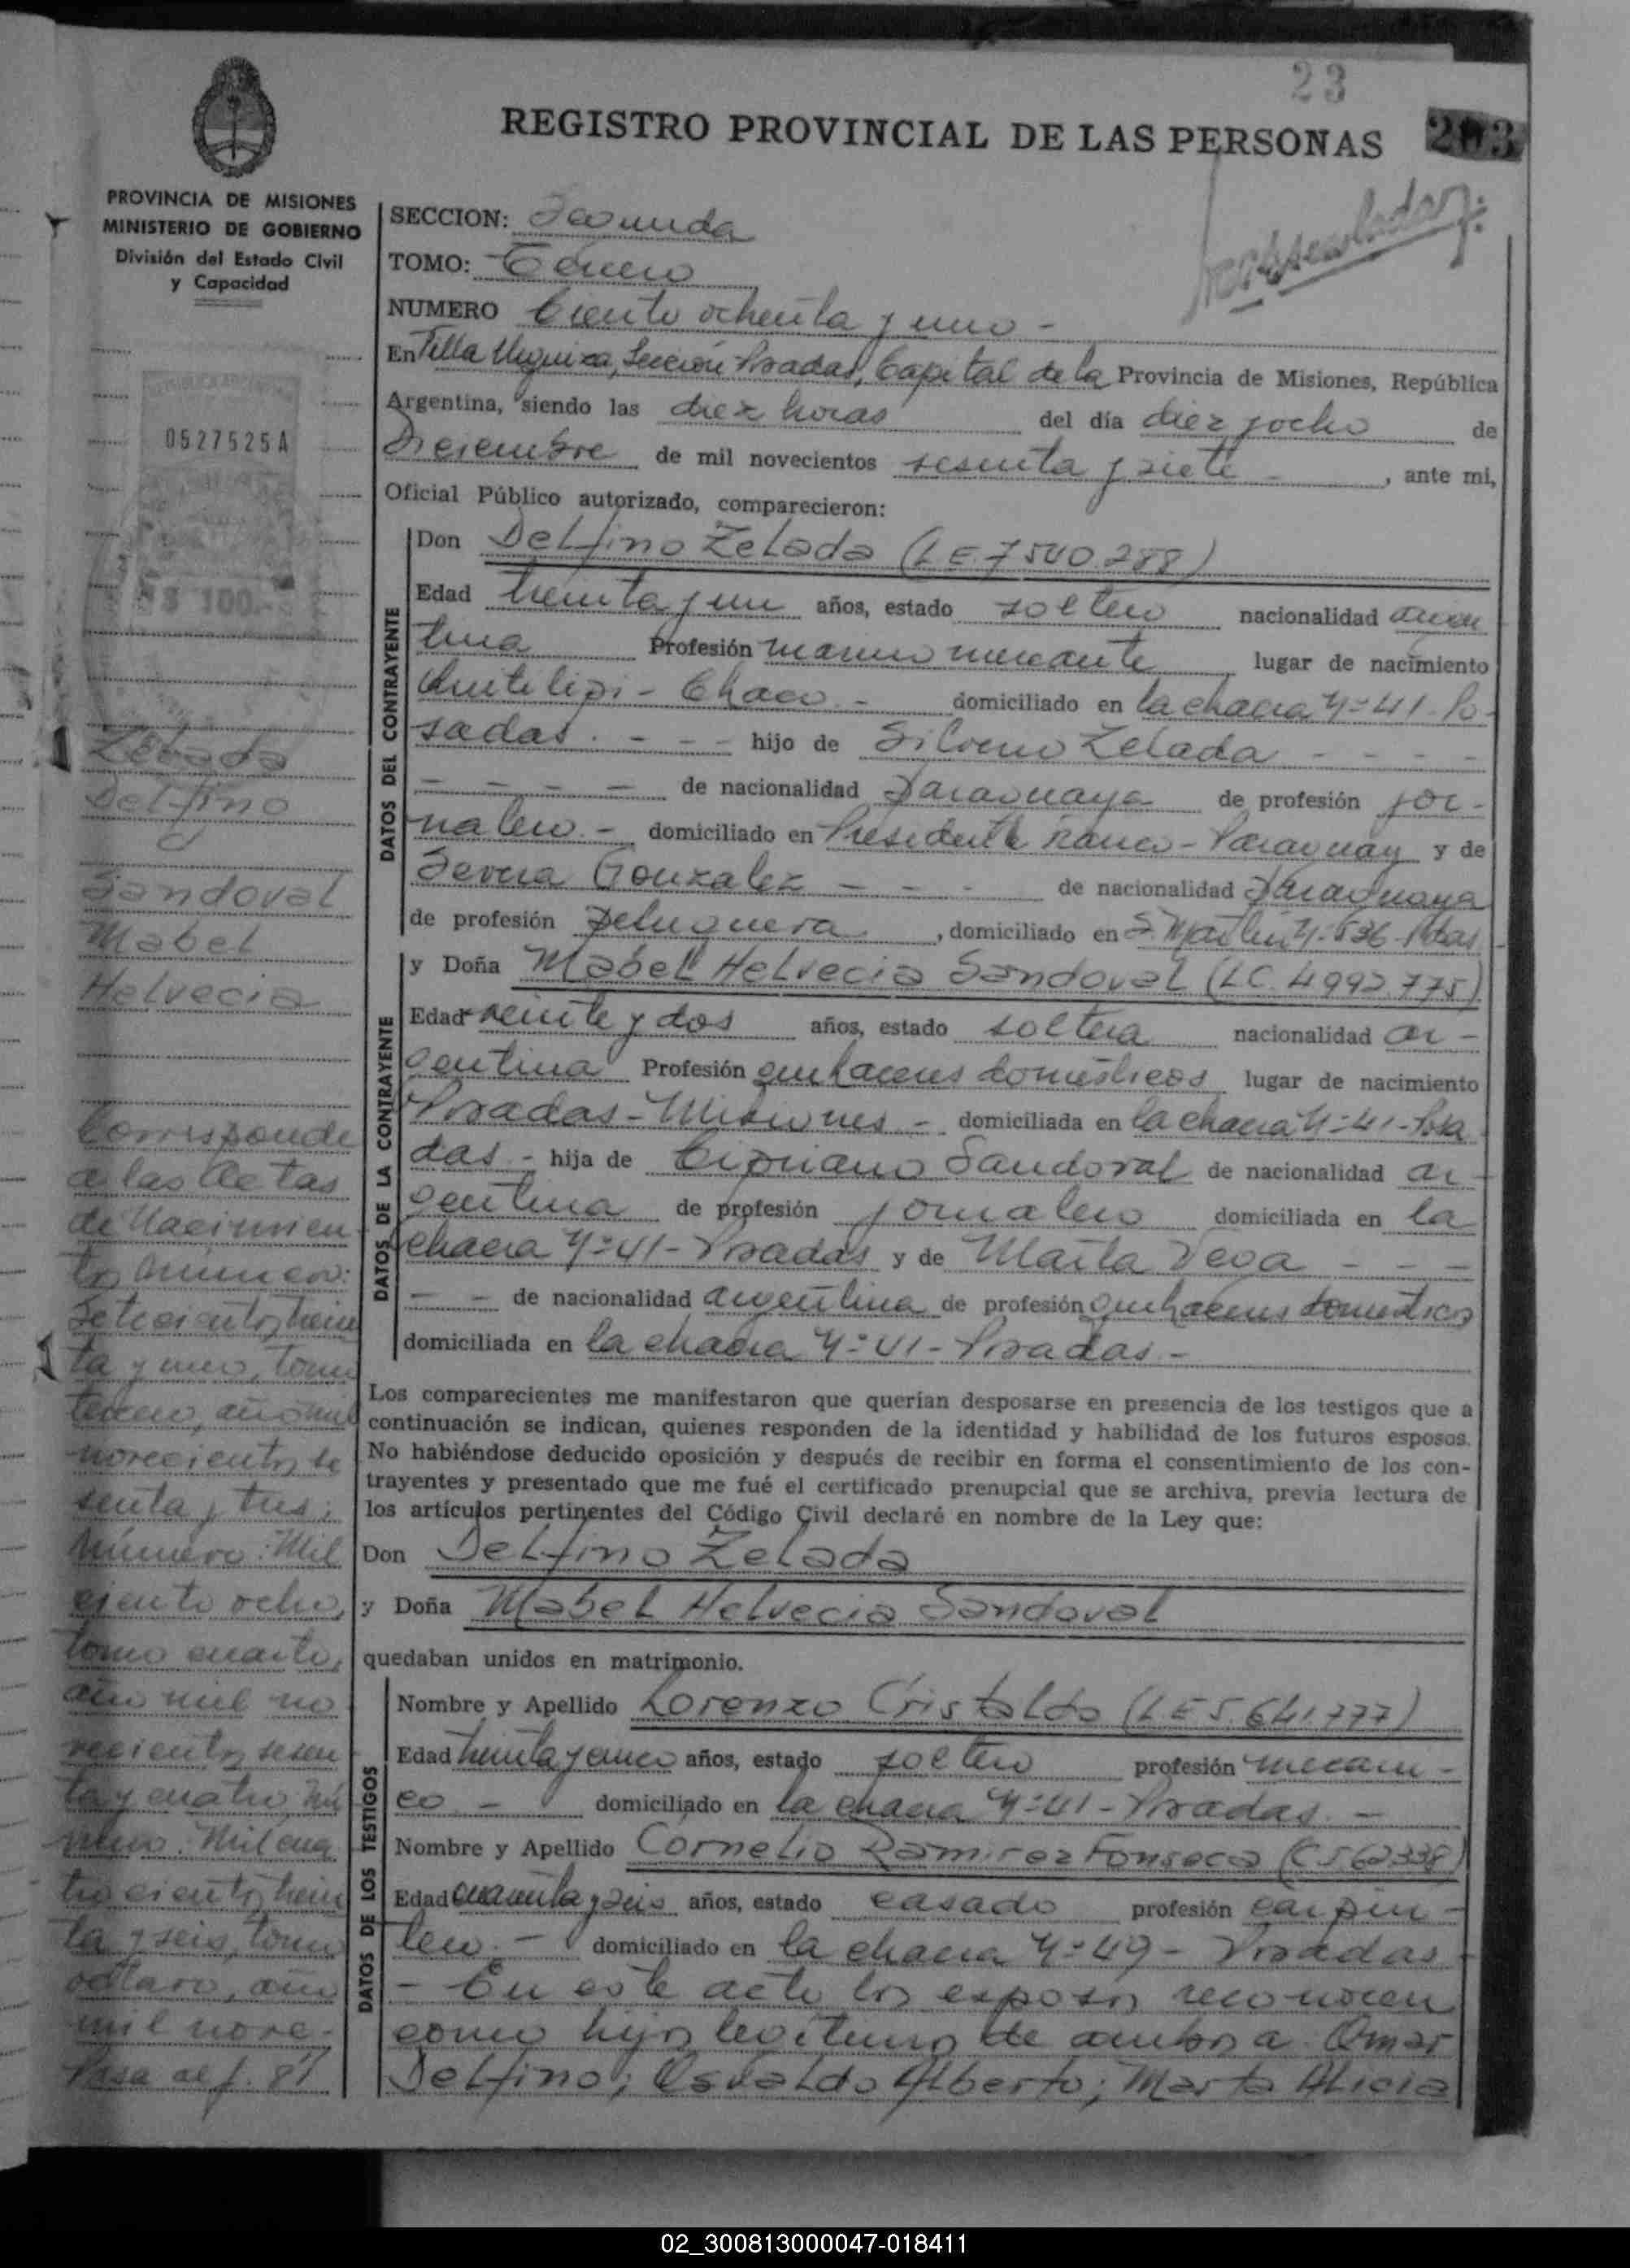 23
REGISTRO PROVINCIAL DE LAS PERSONAS
203
PROVINCIA DE MISIONES
MINISTERIO DE GOBIERNO
División del Estado Civil
y Capacidad
trasladar
SECCION: Segunda
TOMO: Tercero
NUMERO Ciento ochenta y uno -
En Villa Urquiza, Sección Posadas, Capital de la Provincia de Misiones, República
Argentina, siendo las diez horas del día diez y ocho de
Diciembre de mil novecientos sesenta y siete - , ante mi,
Oficial Público autorizado, comparecieron:
0527525A
$ 100.-
DATOS DEL CONTRAYENTE
Don Delfino Zelada (L.E. 7540.288)
Edad treinta y un años, estado soltero nacionalidad argen
tina Profesión marino mercante lugar de nacimiento
Quitilipi - Chaco - domiciliado en la chacra Nº 41 - Po-
sadas. - - - hijo de Silverio Zelada - - - -
- - - - de nacionalidad Paraguaya de profesión jor-
nalero. - domiciliado en Presidente Franco - Paraguay y de
Servia Gonzalez - - - de nacionalidad Paraguaya
de profesión Peluquera , domiciliado en S. Martin Nº 536 - Pdas.
DATOS DE LA CONTRAYENTE
y Doña Mabel Helvecia Sandoval (LC. 4992.775)
Edad veinte y dos años, estado soltera nacionalidad ar-
gentina Profesión quehaceres domésticos lugar de nacimiento
Posadas - Misiones - domiciliada en la chacra Nº 41 - Posa
das - hija de Cipriano Sandoval de nacionalidad ar-
gentina de profesión jornalero domiciliada en la
chacra Nº 41 - Posadas y de Marta Vega - - -
- - de nacionalidad argentina de profesión quehaceres domésticos
domiciliada en la chacra Nº 41 - Posadas. -
Los comparecientes me manifestaron que querían desposarse en presencia de los testigos que a
continuación se indican, quienes responden de la identidad y habilidad de los futuros esposos.
No habiéndose deducido oposición y después de recibir en forma el consentimiento de los con-
trayentes y presentado que me fué el certificado prenupcial que se archiva, previa lectura de
los artículos pertinentes del Código Civil declaré en nombre de la Ley que:
Don Delfino Zelada
y Doña Mabel Helvecia Sandoval
quedaban unidos en matrimonio.
DATOS DE LOS TESTIGOS
Nombre y Apellido Lorenzo Cristaldo (L.E 5.641.777)
Edad treinta y cinco años, estado soltero profesión mecani-
co - domiciliado en la chacra Nº 41 - Posadas. -
Nombre y Apellido Cornelio Ramirez Fonseca (C 562338)
Edad cuarenta y seis años, estado casado profesión carpin-
tero. - domiciliado en la chacra Nº 49 - Posadas
- En este acto los esposos reconocen
como hijos legitimos de ambos a: Omar
Delfino; Osvaldo Alberto; Marta Alicia
Zelada
Delfino
Sandoval
Mabel
Helvecia
Corresponde
a las Actas
de Nacimien
tos número:
Setecientos trein
ta y uno, tomo
tercero, año mil
novecientos se
senta y tres;
número: Mil
ciento ocho,
tomo cuarto,
año mil no
vecientos sesen
ta y cuatro, nú
mero: Mil cua
trocientos trein
ta y seis, tomo
octavo, año
mil nove-
Pasa al f. 81
02_300813000047-018411